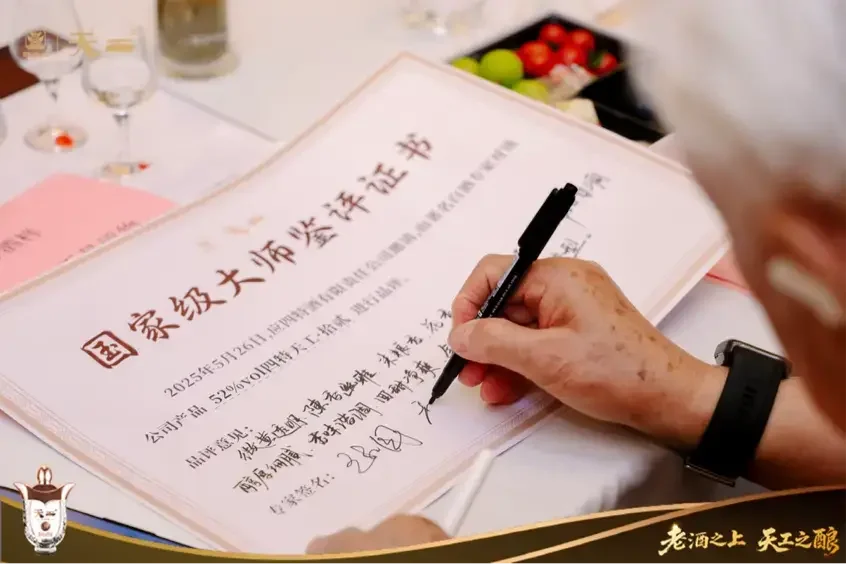 国家级大师鉴评证书
2025年5月26日,应四特酒有限责任公司邀请,由著名白酒专家对该
公司产品 52%vol四特天工·拾贰 进行品评。
品评意见:
微黄透明 陈香幽雅
醇厚细腻、香味谐调 回甜净爽
专家签名:
老酒之上 天工之酿